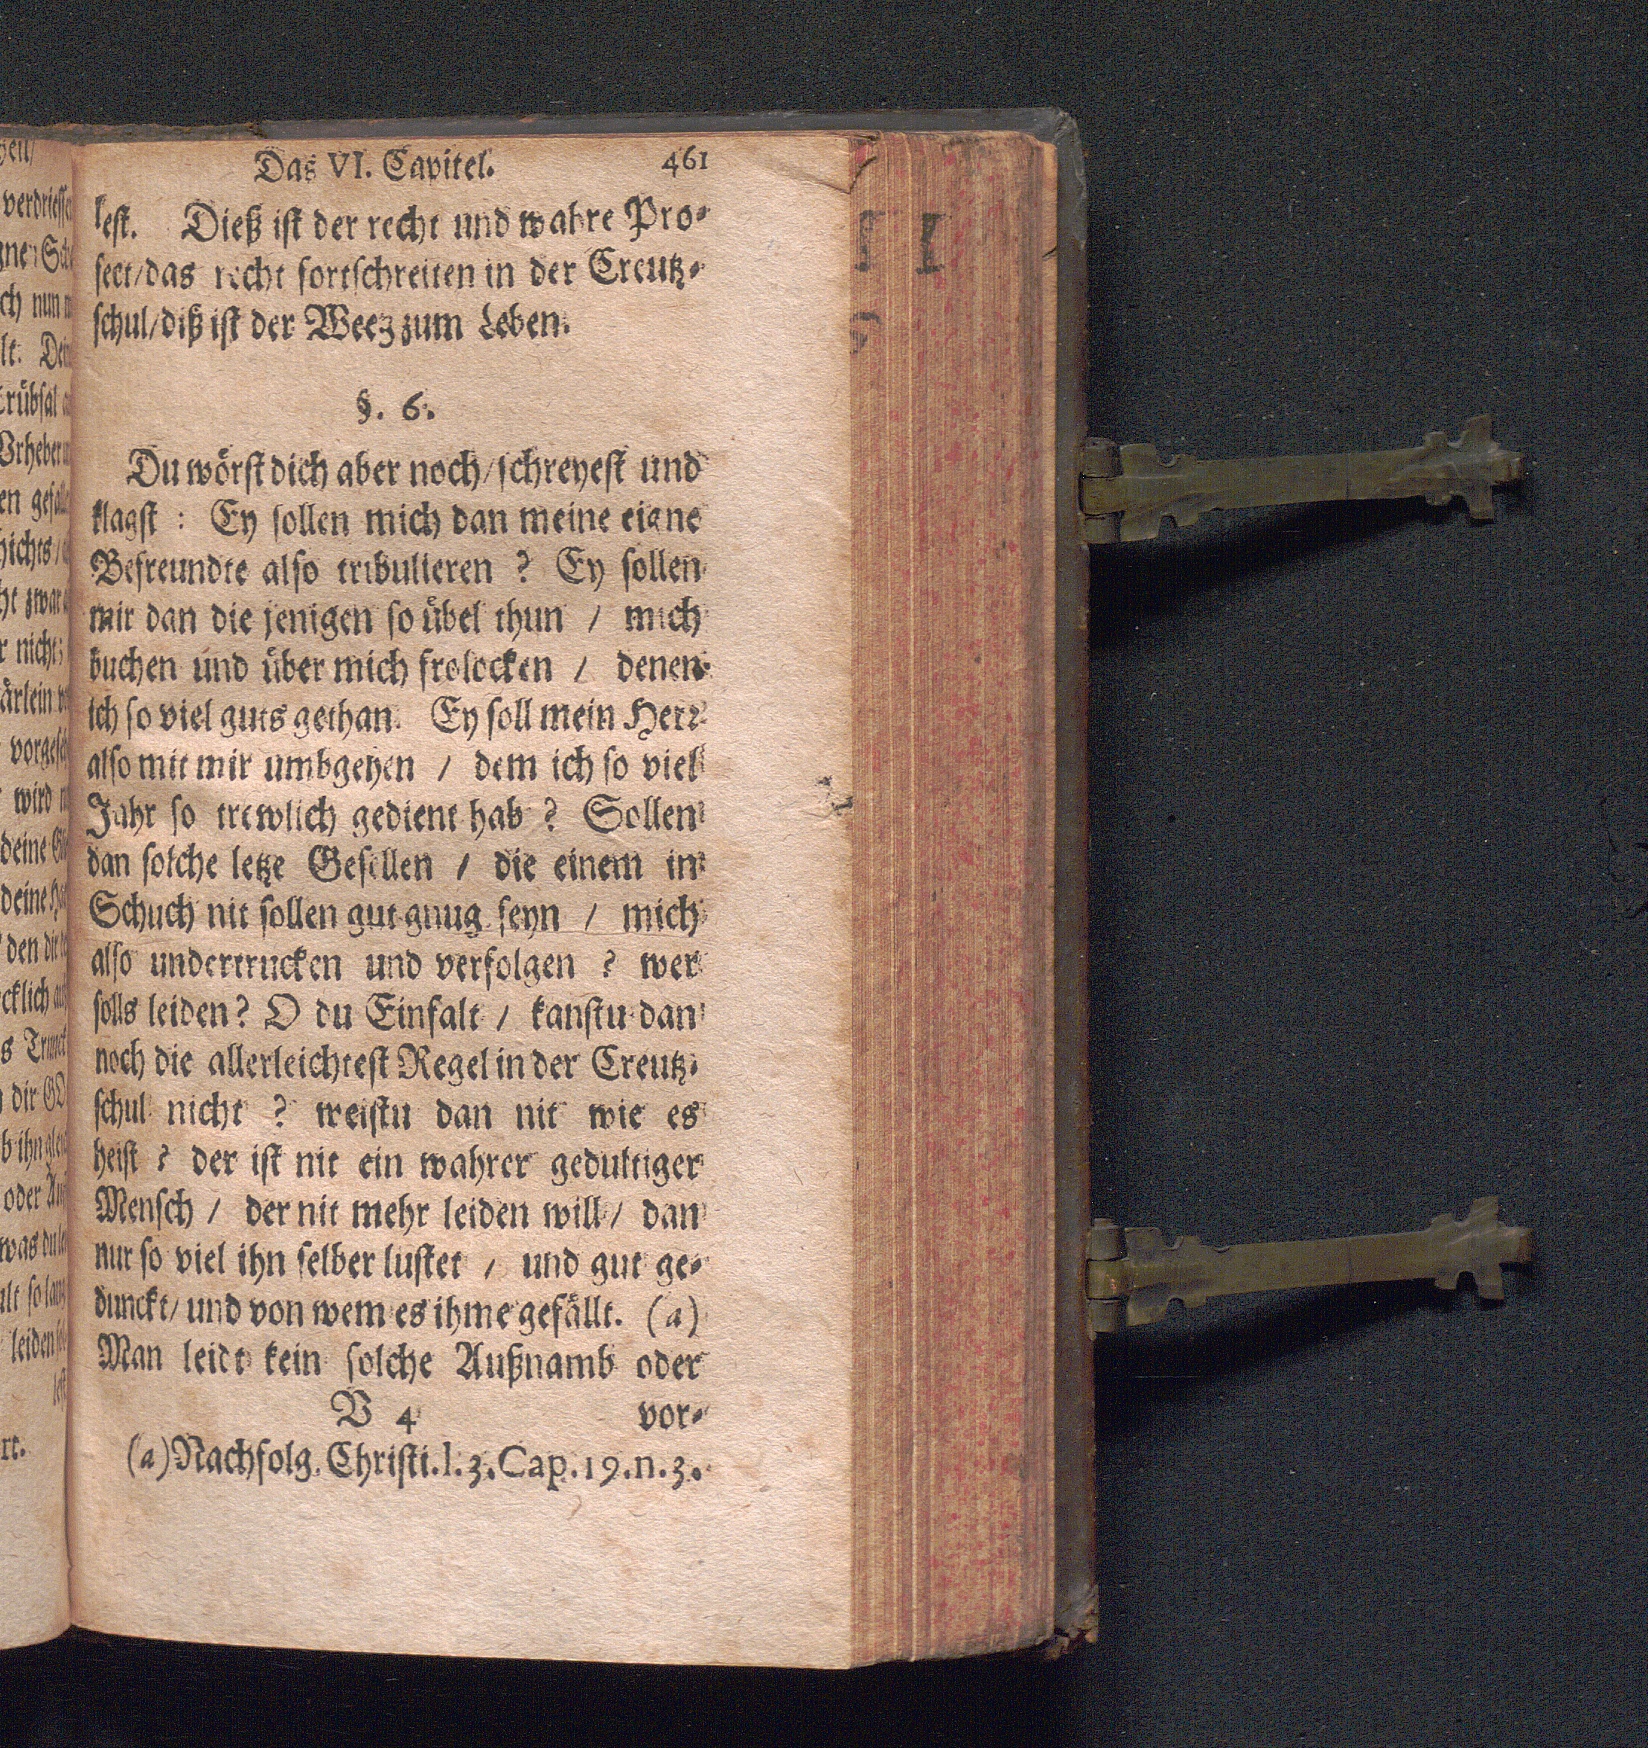 Das VI. Capitel. 461
lest. Dieß ist der recht und wahre Pro-
fect/das recht fortschreiten in der Creutz-
schul/diß ist der Weeg zum Leben.
§. 6.
Du wörst dich aber noch/schreyest und
klagst : Ey sollen mich dan meine eigne
Befreundte also tribulieren ? Ey sollen
mir dan die jenigen so übel thun / mich
buchen und über mich frolocken / denen
ich so viel guts gethan. Ey soll mein Herr
also mit mir umbgehen / dem ich so viel
Jahr so trewlich gedient hab ? Sollen
dan solche letze Gesellen / die einem im
Schuch nit sollen gut gnug seyn / mich
also undertrucken und verfolgen ? wer
solls leiden? O du Einfalt / kanstu dan
noch die allerleichtest Regel in der Creutz-
schul nicht ? weistu dan nit wie es
heist ? der ist nit ein wahrer gedultiger
Mensch / der nit mehr leiden will / dan
nur so viel ihn selber lustet / und gut ge-
dunckt/ und von wem es ihme gefällt. (a)
Man leidt kein solche Außnamb oder
V 4 vor-
(a) Nachfolg. Christi. l. 3. Cap. 19. n. 3.